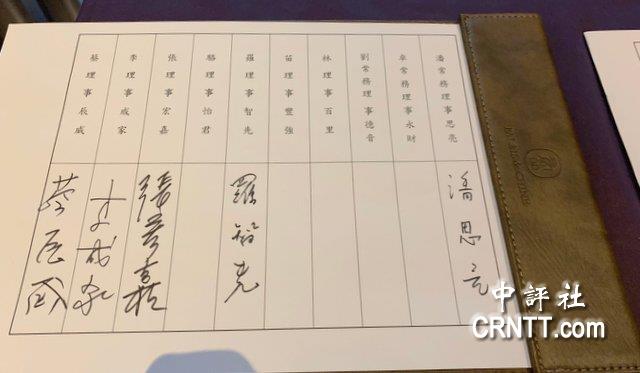 潘常務理事思亮
卓常務理事永財
劉常務理事德音
林理事百里
苗理事豐強
羅理事智先
駱理事怡君
張理事宏嘉
李理事成家
蔡理事辰威
潘思亮
羅智先
張宏嘉
李成家
蔡辰威
中評社
CRNTT.com